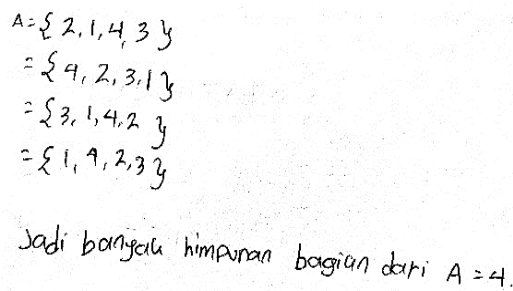 A = { 2, 1, 4, 3 }
= { 4, 2, 3, 1 }
= { 3, 1, 4, 2 }
= { 1, 4, 2, 3 }
Jadi banyak himpunan bagian dari A = 4.